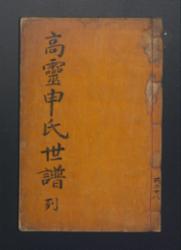 高靈申氏世譜
列